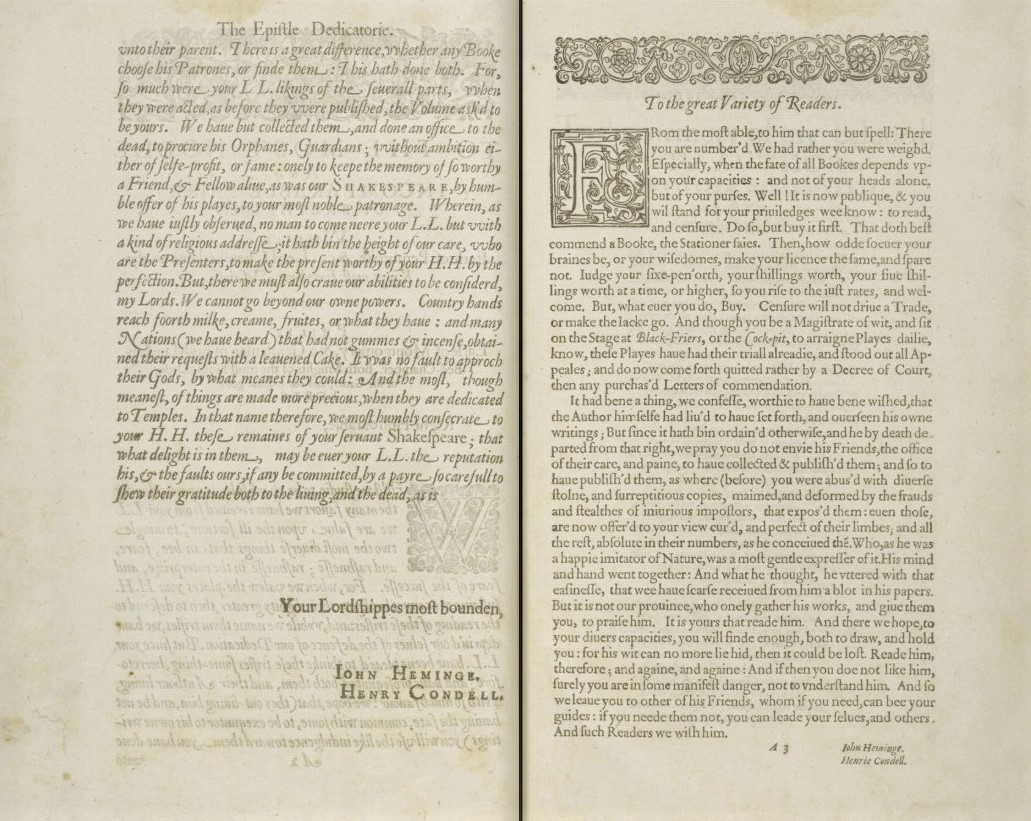 The Epiſtle Dedicatorie.
vnto their parent. There is a great difference, vvhether any Booke
chooſe his Patrones, or finde them: This hath done both. For,
ſo much were your L L. likings of the ſeuerall parts, vvhen
they were acted, as before they vvere publiſhed, the Volume ask'd to
be yours. We haue but collected them, and done an office to the
dead, to procure his Orphanes, Guardians; vvithout ambition ei-
ther of ſelfe-profit, or fame: onely to keepe the memory of ſo worthy
a Friend, & Fellow aliue, as was our SHAKESPEARE, by hum-
ble offer of his playes, to your moſt noble patronage. Wherein, as
we haue iuſtly obſerued, no man to come neere your L.L. but vvith
a kind of religious addreſſe; it hath bin the height of our care, vvho
are the Preſenters, to make the preſent worthy of your H.H. by the
perfection. But, there we muſt alſo craue our abilities to be conſiderd,
my Lords. We cannot go beyond our owne powers. Country hands
reach foorth milke, creame, fruites, or what they haue: and many
Nations (we haue heard) that had not gummes & incenſe, obtai-
ned their requeſts with a leauened Cake. It vvas no fault to approch
their Gods, by what meanes they could: And the moſt, though
meaneſt, of things are made more precious, when they are dedicated
to Temples. In that name therefore, we moſt humbly conſecrate to
your H. H. theſe remaines of your ſeruant Shakeſpeare; that
what delight is in them, may be euer your L.L. the reputation
his, & the faults ours, if any be committed, by a payre ſo carefull to
ſhew their gratitude both to the liuing, and the dead, as is
Your Lordſhippes moſt bounden,
IOHN HEMINGE.
HENRY CONDELL.
To the great Variety of Readers.
FRom the moſt able, to him that can but ſpell: There
you are number'd. We had rather you were weighd.
Eſpecially, when the fate of all Bookes depends vp-
on your capacities: and not of your heads alone,
but of your purſes. Well! It is now publique, & you
wil ſtand for your priuiledges wee know: to read,
and cenſure. Do ſo, but buy it firſt. That doth beſt
commend a Booke, the Stationer ſaies. Then, how odde ſoeuer your
braines be, or your wiſedomes, make your licence the ſame, and ſpare
not. Iudge your ſixe-pen'orth, your ſhillings worth, your fiue ſhil-
lings worth at a time, or higher, ſo you riſe to the iuſt rates, and wel-
come. But, what euer you do, Buy. Cenſure will not driue a Trade,
or make the Iacke go. And though you be a Magiſtrate of wit, and ſit
on the Stage at Black-Friers, or the Cock-pit, to arraigne Playes dailie,
know, theſe Playes haue had their triall alreadie, and ſtood out all Ap-
peales; and do now come forth quitted rather by a Decree of Court,
then any purchas'd Letters of commendation.
It had bene a thing, we confeſſe, worthie to haue bene wiſhed, that
the Author himſelfe had liu'd to haue ſet forth, and ouerſeen his owne
writings; But ſince it hath bin ordain'd otherwiſe, and he by death de-
parted from that right, we pray you do not envie his Friends, the office
of their care, and paine, to haue collected & publiſh'd them; and ſo to
haue publiſh'd them, as where (before) you were abus'd with diuerſe
ſtolne, and ſurreptitious copies, maimed, and deformed by the frauds
and ſtealthes of iniurious impoſtors, that expos'd them: euen thoſe,
are now offer'd to your view cur'd, and perfect of their limbes; and all
the reſt, abſolute in their numbers, as he conceiued thē. Who, as he was
a happie imitator of Nature, was a moſt gentle expreſſer of it. His mind
and hand went together: And what he thought, he vttered with that
eaſineſſe, that wee haue ſcarſe receiued from him a blot in his papers.
But it is not our prouince, who onely gather his works, and giue them
you, to praiſe him. It is yours that reade him. And there we hope, to
your diuers capacities, you will finde enough, both to draw, and hold
you: for his wit can no more lie hid, then it could be loſt. Reade him,
therefore; and againe, and againe: And if then you doe not like him,
ſurely you are in ſome manifeſt danger, not to vnderſtand him. And ſo
we leaue you to other of his Friends, whom if you need, can bee your
guides: if you neede them not, you can leade your ſelues, and others.
And ſuch Readers we wiſh him.
A 3
Iohn Heminge.
Henrie Condell.